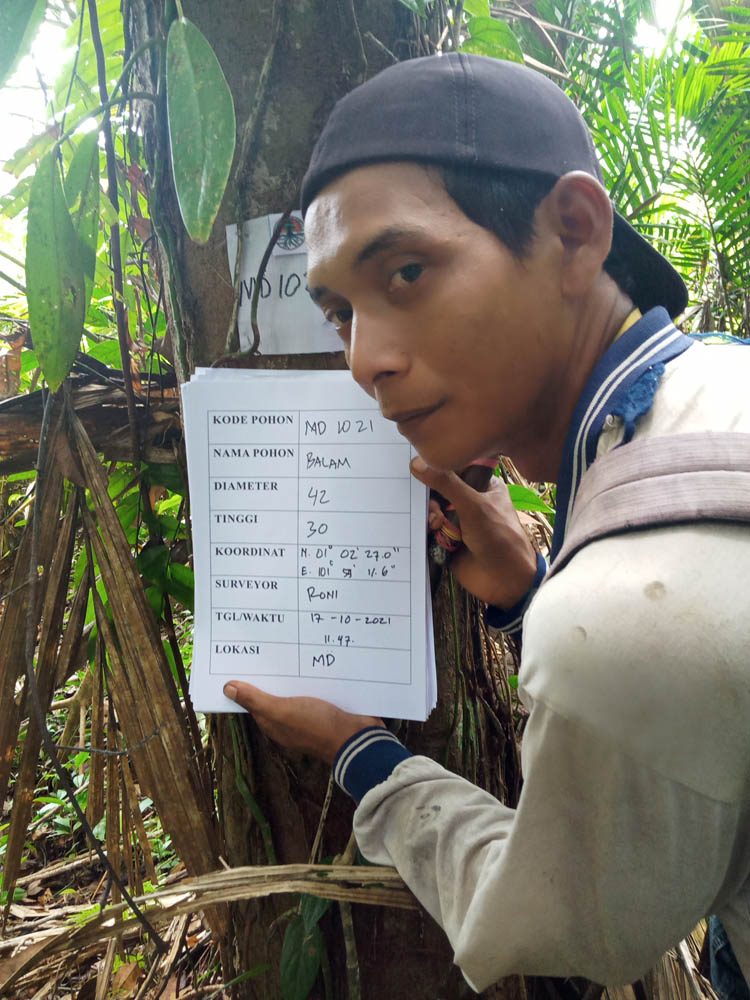 MD 102
KODE POHON MD 1021
NAMA POHON BALAM
DIAMETER 42
TINGGI 30
KOORDINAT N. 01° 02' 27.0"
E. 101° 59' 11.6"
SURVEYOR RONI
TGL/WAKTU 17-10-2021
11.47.
LOKASI MD